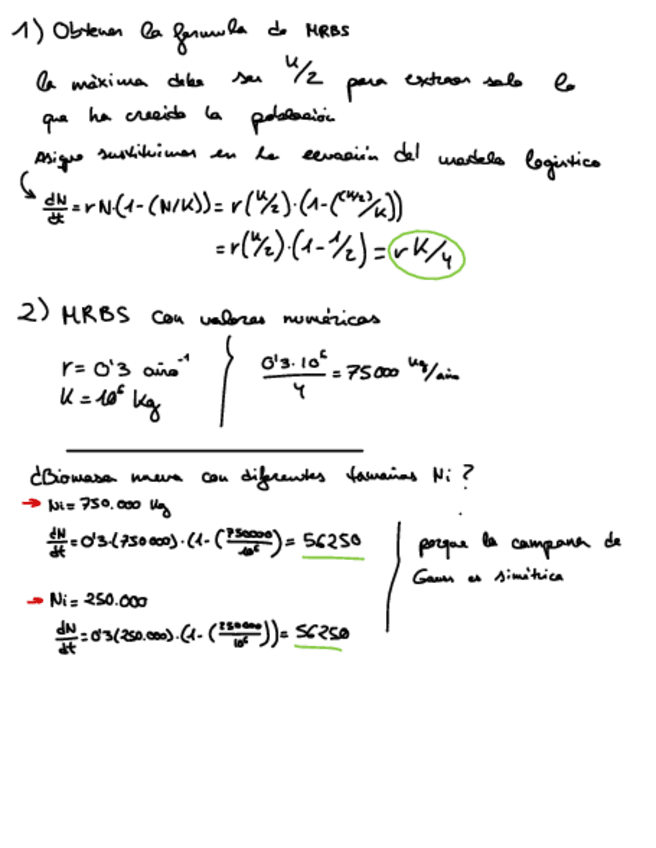 1) Obtener la formula de MRBS
la máxima debe ser K/2 para extraer solo lo
que ha crecido la población
Asique sustituimos en la ecuación del modelo logístico
dN/dt = r N·(1-(N/K)) = r(K/2)·(1-((K/2)/K))
= r(K/2)·(1-1/2) = r K/4
2) MRBS con valores numéricos
r = 0'3 año⁻¹
K = 10⁶ Kg
0'3·10⁶/4 = 75000 Kg/año
¿Biomasa nueva con diferentes tamaños Ni?
→ Ni = 750.000 Kg
dN/dt = 0'3·(750000)·(1-(750000/10⁶)) = 56250
porque la campana de
Gauss es simétrica
→ Ni = 250.000
dN/dt = 0'3(250.000)·(1-(250000/10⁶)) = 56250